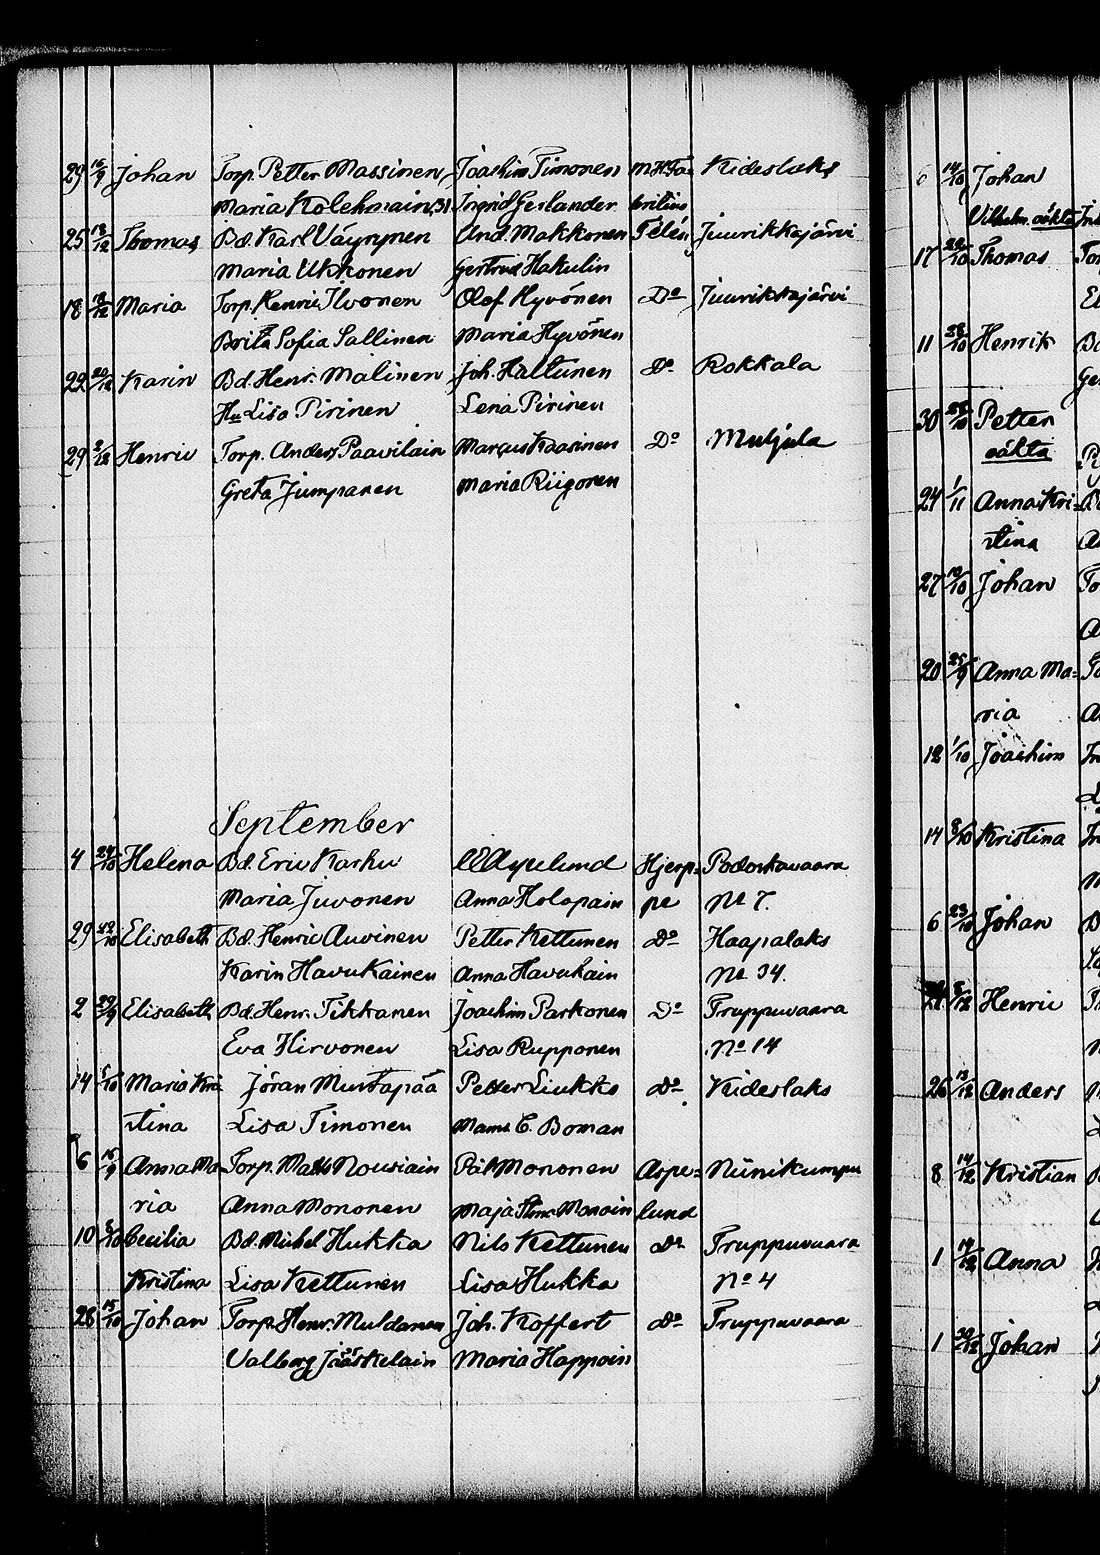 29 16/9 Johan Torp. Petter Massinen, Joachim Timonen M.H. Fab- Kideslaks
Maria Kolehmain, 31. Ingrid Gerlander britius
25 18/12 Thomas Bd. Karl Väyrynen And. Makkonen Felén Juurikkajärvi
Maria Ukkonen Gertrud Hakulin
18 18/12 Maria Torp. Henric Ilvonen Olof Hyvönen Do Juurikkajärvi
Brita Sofia Sallinen Maria Hyvönen
22 Karin Bd. Henr. Malinen Joh. Haltunen Do Rokkala
Hu Lisa Pirinen Lena Pirinen
29 Henric Torp. Anders Paavilain Marcus Kaasinen Do Muljula
Greta Jumpanen Maria Riigonen
September
4 Helena Bd. Eric Karhu Hjerp- Podorkavaara
Maria Juvonen Anna Holopain pe No 7.
29 Elisabeth Bd. Henric Auvinen Petter Kettunen Do Haapalaks
Karin Havukainen Anna Havukain No 34.
2 29/9 Elisabeth Bd. Henr. Tikkanen Joachim Parkonen Do Truppuvaara
Eva Hirvonen Lisa Rupponen No 14
14 Maria Kris Jöran Mustapää Petter Liukko Do Kideslaks
tina Lisa Timonen Mams. C. Boman
6 15/9 Anna Ma- Torp. Matts Nousiain Påhl Mononen Aspe- Niinikumpu
ria Anna Mononen Maja Stina Monoin lund
10 Cecilia Bd. Michel Hukka Nils Kettunen Do Truppuvaara
Kristina Lisa Kettunen Lisa Hukka No 4
28 15/10 Johan Torp. Henr. Muldanen Joh. Koffert Do Truppuvaara
Valborg Jääskelain Maria Happoin
6 14/10 Johan
Vilhelm oäkta
17 Thomas
11 28/10 Henrik
30 Petter
oäkta
24 1/11 Anna Kri-
stina
27 10/10 Johan
20 25/9 Anna Ma-
ria
12 1/10 Joachim
14 8/10 Kristina
6 23/10 Johan
Henric
26 13/12 Anders
8 14/12 Kristian
1 19/12 Anna
1 Johan